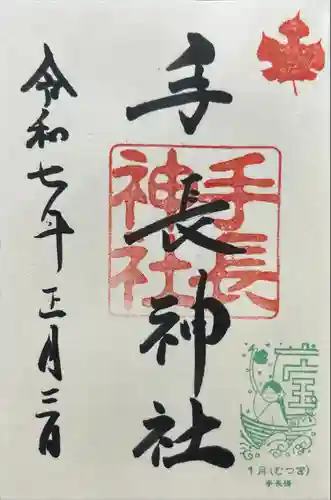 手長神社
令和七年正月三日
手長
神社
1月(むつき)
手長様